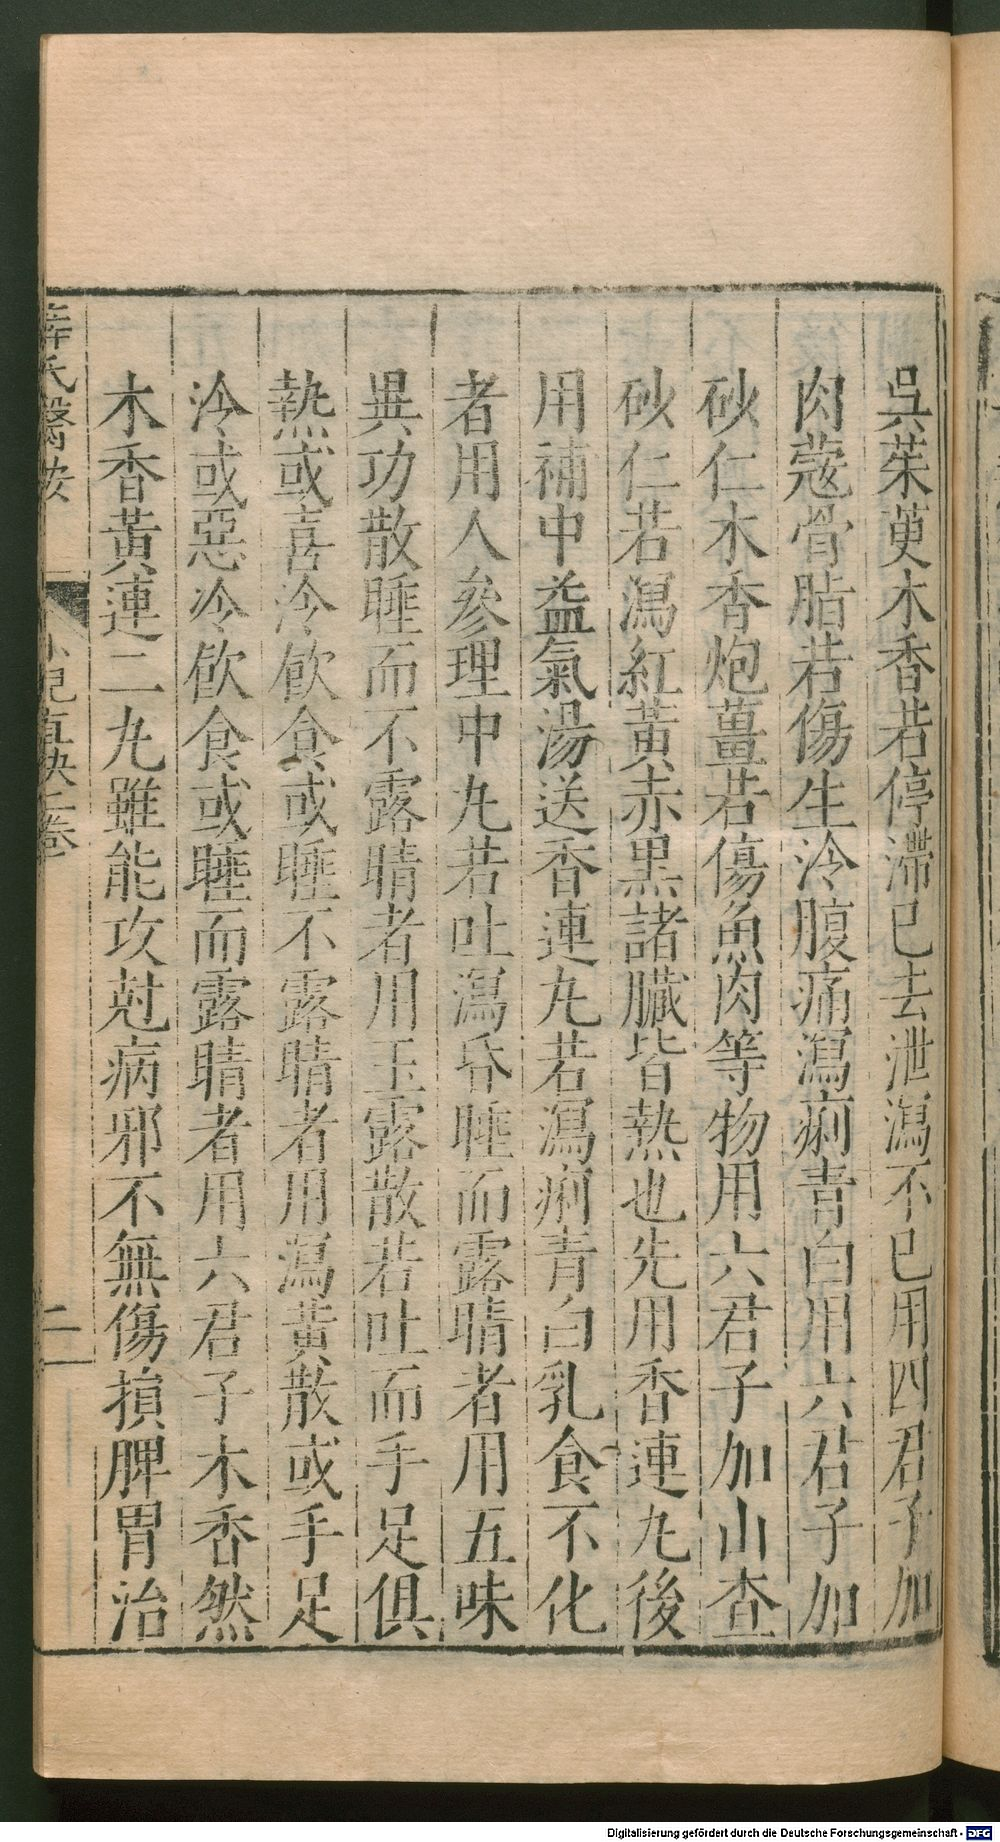 吳茱萸木香若停滯已去泄瀉不已用四君子加
肉蔻骨脂若傷生冷腹痛瀉痢青白用六君子加
砂仁木香炮薑若傷魚肉等物用六君子加山查
砂仁若瀉紅黃赤黑諸臟皆熱也先用香連丸後
用補中益氣湯送香連丸若瀉痢青白乳食不化
者用人參理中丸若吐瀉昏睡而露睛者用五味
異功散睡而不露睛者用玉露散若吐而手足俱
熱或喜冷飲食或睡不露睛者用瀉黃散或手足
冷或惡冷飲食或睡而露睛者用六君子木香然
木香黃連二丸雖能攻尅病邪不無傷損脾胃治
薛氏醫按 小兒直訣二卷 二
Digitalisierung gefördert durch die Deutsche Forschungsgemeinschaft - DFG